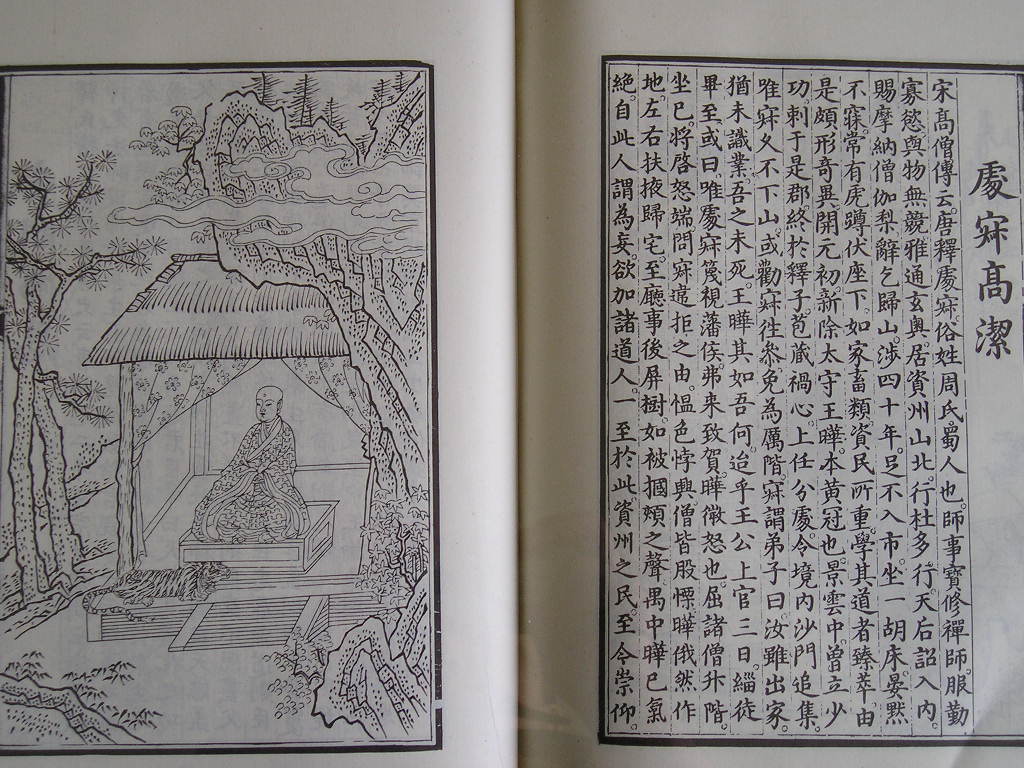 處寂高潔
宋高僧傳云。唐釋處寂。俗姓周氏。蜀人也。師事寶修禪師。服勤
寡慾與物無競。雅通玄奧。居資州山北。行杜多行。天后詔入內
賜摩納僧伽梨。辭乞歸山。涉四十年。足不入市。坐一胡床。晏默
不寐。常有虎蹲伏座下。如家畜類。資民所重。學其道者臻萃。由
是頗形奇異。開元初。新除太守王曄。本黃冠也。景雲中曾立少
功。刺于是郡。終於釋子。苞藏禍心。上任分處。令境內沙門追集。
唯寂久不下山。或勸寂往參。免為厲階。寂謂弟子曰。汝雖出家
猶未識業。吾之未死。王曄其如吾何。迨乎王公上官三日。緇徒
畢至。或曰。唯處寂篾視藩侯。弗來致賀。曄微怒也。屈諸僧升階。
坐已。將啓怒端。問寂違拒之由。愠色悖興。僧皆股慄。曄俄然作
地。左右扶掖歸宅。至廳事後屏樹。如被摑頰之聲。禺中曄已氣
絕。自此人謂為妄欲加諸道人。一至於此。資州之民至今崇仰